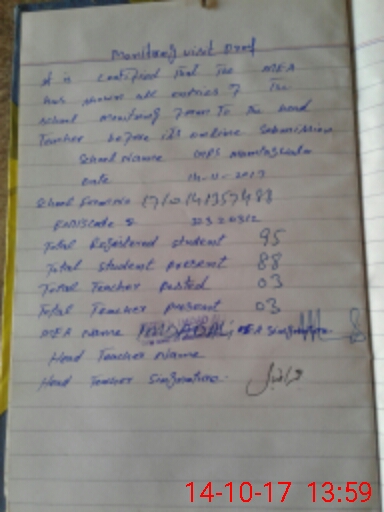 Monitoring visit Prof
it is certified that the MEA
has shown all entries of the
school monitoring form to the head
Teacher before its online submission
School Name GGPS
Date
School Formno
EMIScode
Total Registered student 95
Total student present 88
Total Teacher posted 03
Total Teacher present 03
MEA Name MEA Singnature
Head Teacher Name
Head Teacher Singnature.
14-10-17 13:59